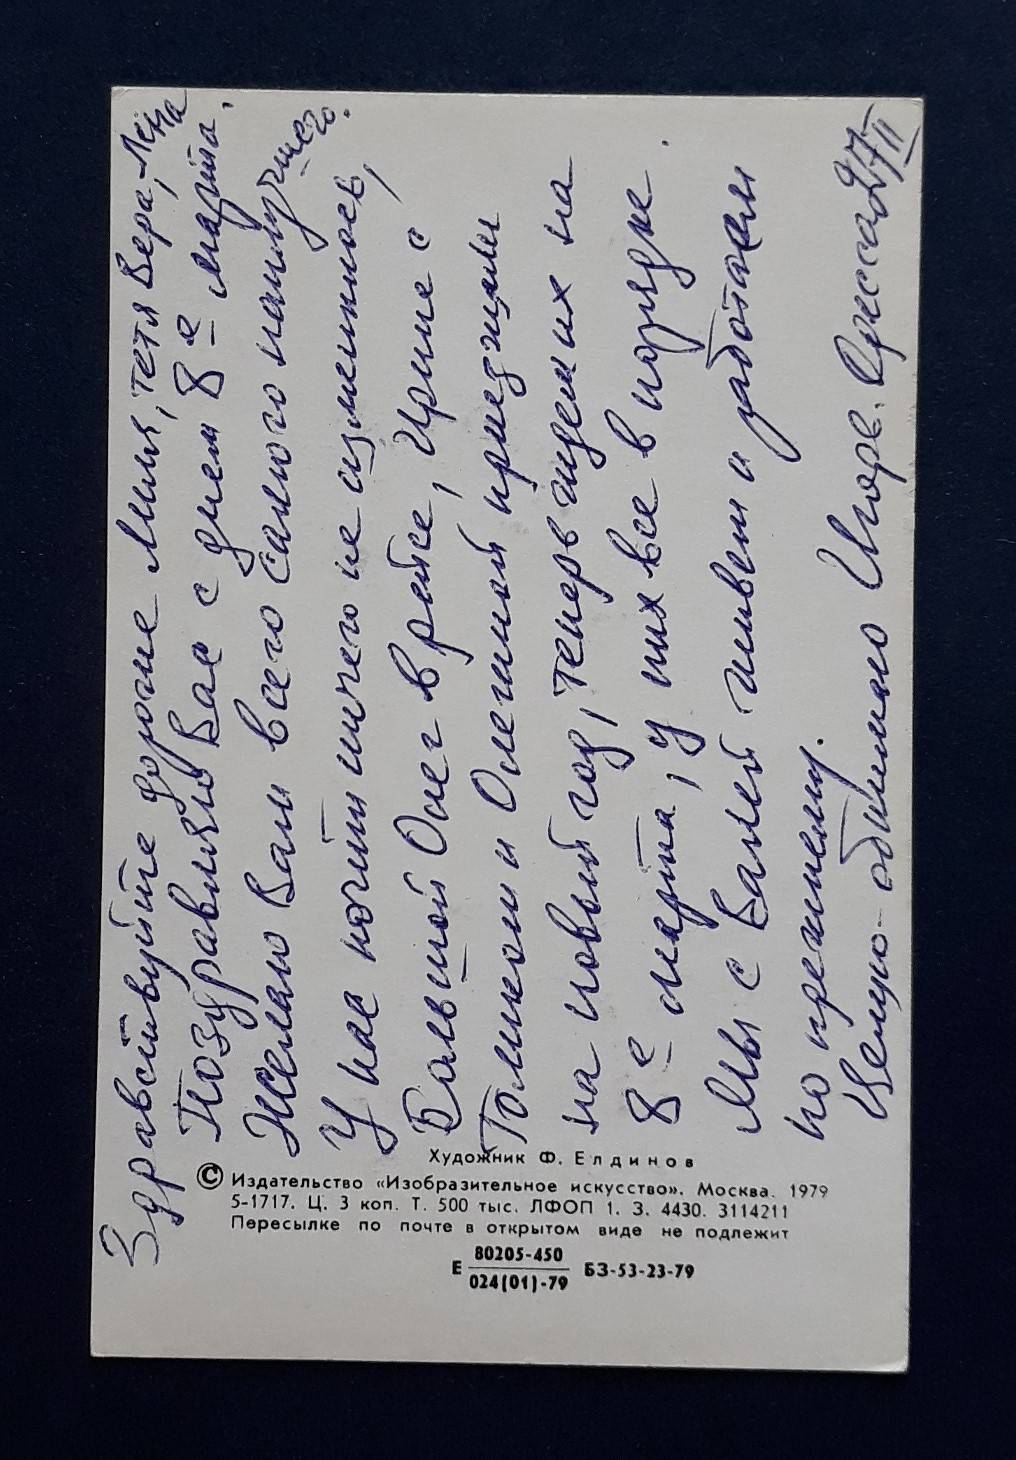 Здравствуйте дорогие Миля, тетя Вера, Лена
Поздравляю Вас с днем 8е марта.
Желаю Вам всего самого наилучшего.
У нас почти ничего не изменилось,
Большой Олег в рейсе, Ирине с
Толиком и Олегиной приезжали
на новый год, теперь ждем их на
8е марта, у них все в порядке.
Мы с Валей живем и работаем
по прежнему.
Целую-обнимаю Игорь. Одесса 27/II
Художник Ф. Елдинов
© Издательство «Изобразительное искусство». Москва. 1979
5-1717. Ц. 3 коп. Т. 500 тыс. ЛФОП 1. З. 4430. 3114211
Пересылке по почте в открытом виде не подлежит
Е 80205-450 БЗ-53-23-79
024(01)-79